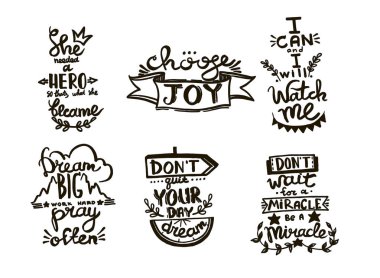 She
needed
a
HERO
so that's what she
became
choose
JOY
I
CAN
and
I
will
Watch
me
Dream
BIG
WORK HARD
pray
often
DON'T
quit
YOUR
DAY
dream
DON'T
wait
for a
MIRACLE
BE A
Miracle